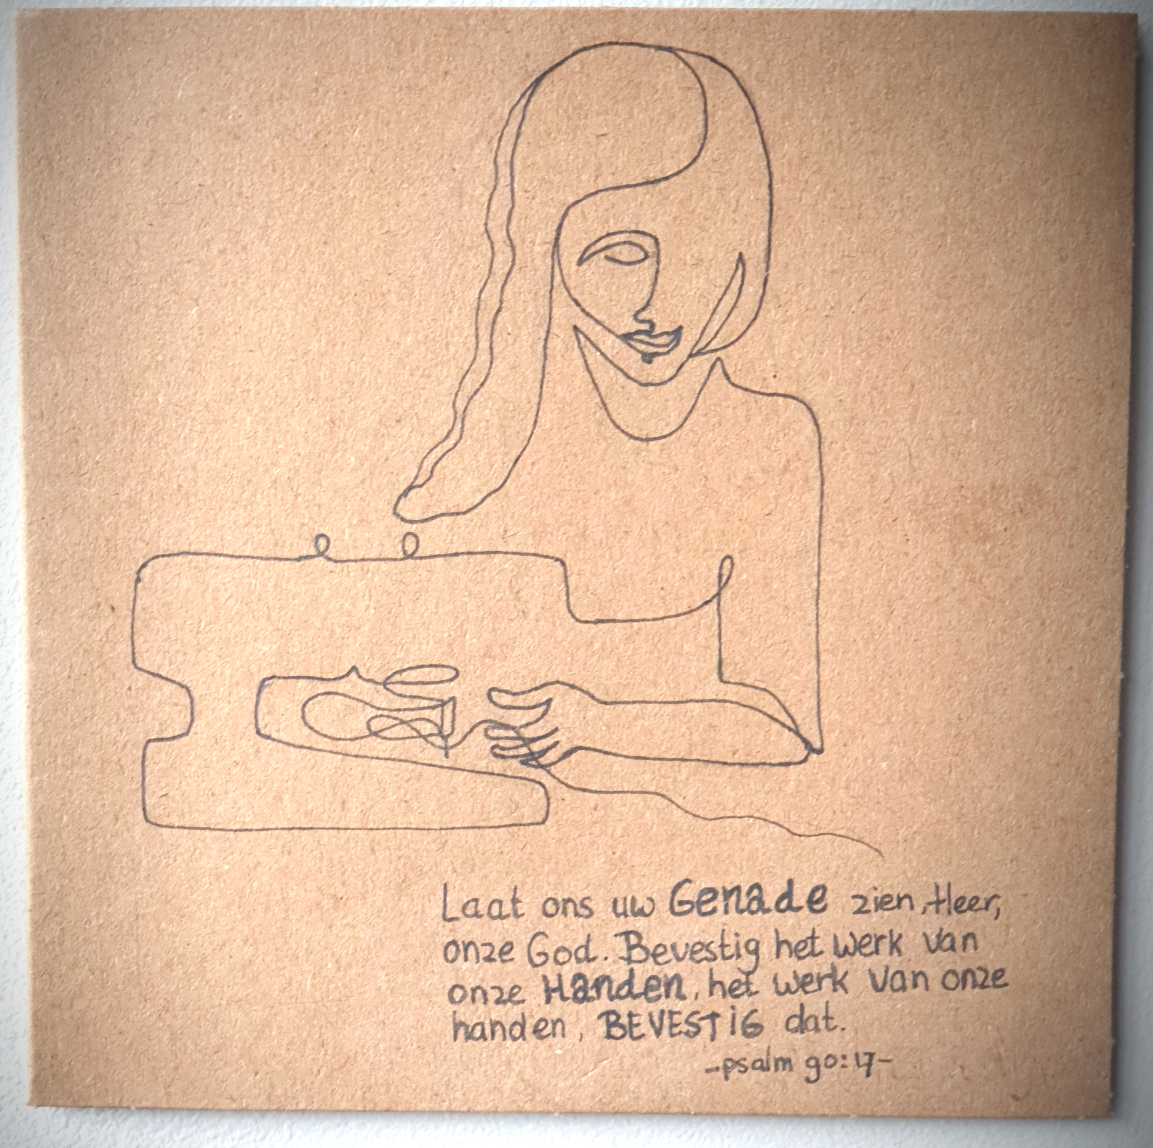 Laat ons uw Genade zien, Heer,
onze God. Bevestig het werk van
onze Handen, het werk van onze
handen, BEVESTIG dat.
-psalm 90:17-